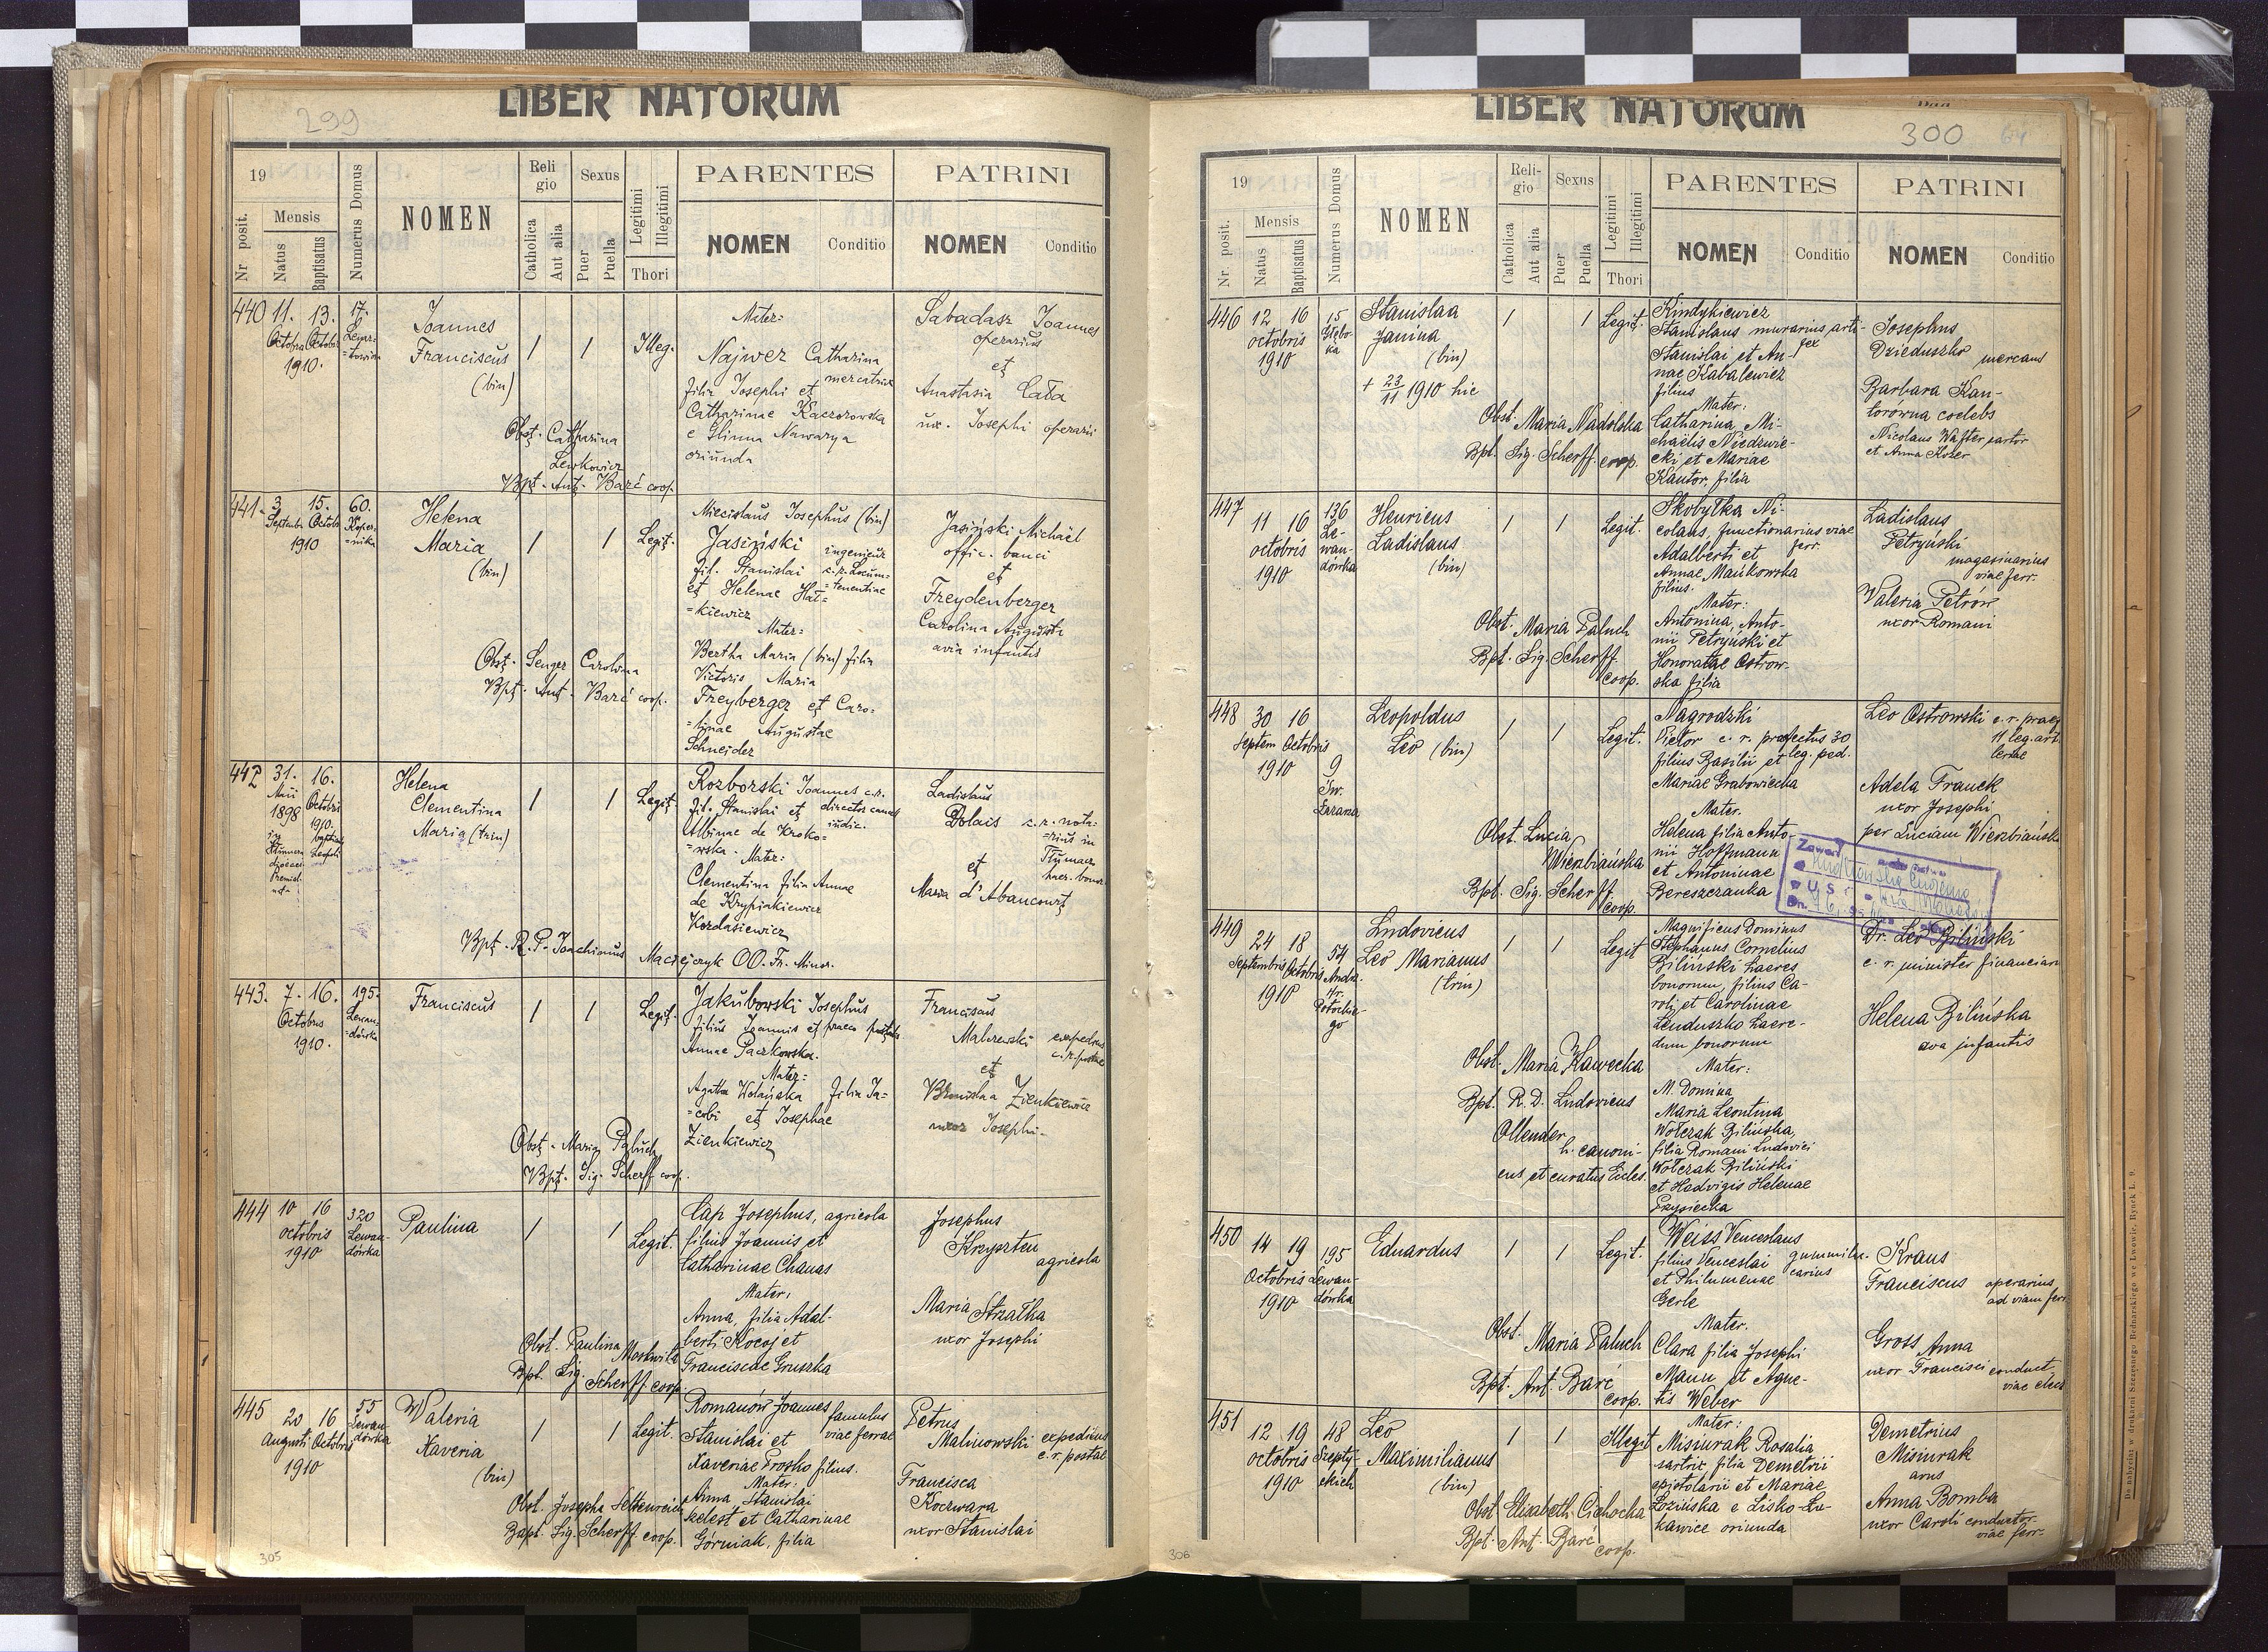 299
LIBER NATORUM
19
Nr posit.
Mensis
Natus
Baptisatus
Numerus Domus
NOMEN
Religio
Catholica
Aut alia
Sexus
Puer
Puella
Legitimi
Illegitimi
Thori
PARENTES
NOMEN
Conditio
PATRINI
NOMEN
Conditio
440 11. 13. 17.
Octobris Octobr
1910.
Joannes
Franciscus
(bin)
/ / Illeg.
Obst. Catharina
Lewkowicz
Bpt. Ant. Barć coop.
Mater:
Najwer Catharina
mercatrix
filia Josephi et
Catharinae Kaczorowska
e Glinna Nawarya
oriunda
Sabadasz Joannes
operarius
et
Anastasia Cała
ux. Josephi operarii
441 3 15. 60.
Septembr Octobr
1910
Koper-
=nika
Helena
Maria
(bin)
/ / Legit.
Obst. Senger Carolina
Bpt. Ant. Barć coop.
Miecislaus Josephus (bin)
Jasiński ingenieur
fil. Stanislai c.r. Locum-
=tenentiae
et Helenae Hat-
=kiewicz
Mater:
Bertha Maria (bin) filia
Victoris Maria
Freyberger et Caro-
=linae Augustae
Schneider
Jasiński Michaël
offic. banci
et
Freydenberger
Carolina Augusta
avia infantis
442 31. 16.
Maii Octobris
1898 1910.
Helena
Clementina
Maria (trin)
/ / Legit.
Bpt. R. P. Joachimus Maciejczyk OO. Fr. Minor.
Rozborski Joannes c.r.
fil. Stanislai et director cancel
iudic.
Albinae de Kroko-
=wska. Mater:
Clementina filia Annae
de Krypiakiewicz
Kordasiewicz
Ladislaus
Dolais c.r. nota-
=rius in
Tłumacz
et haer. bonor.
Maria d'Abancourt
443. 7. 16. 195.
Octobris
1910.
Lewan-
=dówka
Franciscus
/ / Legit.
Obst. Maria Paluch
Bpt. Sig. Scherff coop.
Jakubowski Josephus
filius Joannis et praeco postalis
Annae Paczkowska.
Mater:
Agatha Wolańska filia Ja-
=cobi et Josephae
Zienkiewicz
Franciscus
Malczewski expeditus
c.r. postae
et
Bronislaa Zienkiewicz
uxor Josephi.
444 10 16 320
octobris
1910
Lewan-
dówka
Paulina
/ / Legit.
Obst. Paulina Moskwik
Bpt. Sig. Scherff coop.
Cap Josephus, agricola
filius Joannis et
Catharinae Chanas
Mater,
Anna, filia Adal-
berti Kocoj et
Franciscae Gruszka
Josephus
Krzyszten
agricola
Maria Strzałka
uxor Josephi
445 20 16 55
Augusti Octobris
1910
Lewan-
dówka
Waleria
Xaveria
(bin)
/ / Legit.
Bapt. Sig. Scherff coop.
Romanów Joannes famulus
viae ferrae
Stanislai et
Xaveriae Prosko filius.
Mater:
Anna, Stanislai
Kelest et Catharinae
Górniak, filia
Petrus
Malinowski expeditus
c.r. postae
Francisca
Koczwara
uxor Stanislai
305
300
LIBER NATORUM
19
Nr. posit.
Mensis
Natus
Baptisatus
Numerus Domus
NOMEN
Religio
Catholica
Aut alia
Sexus
Puer
Puella
Legitimi
Illegitimi
Thori
PARENTES
NOMEN
Conditio
PATRINI
NOMEN
Conditio
446 12 16 15
octobris
1910
Głębo-
ka
Stanislaa
Janina
(bin)
+ 23/11 1910 hic
/ / Legit.
Obst. Maria Nadolska
Bpt. Sig. Scherff coop.
Kindykiewicz
Stanislaus murarius, arti-
fex
Stanislai et An-
nae Kabalewicz
filius
Mater:
Catharina, Mi-
chaelis Niedzwie-
cki et Mariae
Kantor, filia
Josephus
Dzieduszko mercand
Barbara Kan-
torówna coelebs
Nicolaus Walter sartor
et Anna Kozer
447 11 16 136
octobris
1910
Le-
wan-
dówka
Henricus
Ladislaus
(bin)
/ / Legit.
Obst. Maria Paluch
Bpt. Sig. Scherff
coop.
Skobyłka Ni-
colaus, functionarius viae
ferr.
Adalberti et
Annae Mańkowska
filius.
Mater:
Antonina, Anto-
nii Petryński et
Honoratae Ostrow-
ska filia
Ladislaus
Petryński
magasinarius
viae ferr.
Waleria Petrów
uxor Romani
448 30 16 9
Septem Octobris
1910
Św.
Łazarza
Leopoldus
Leo (bin)
/ / Legit.
Obst. Lucia
Wierzbiańska
Bpt. Sig. Scherff
coop.
Nagrodzki
Victor c. r. praefectus 30
leg. ped.
filius Basilii et
Mariae Grabowiecka
Mater.
Helena filia Anto-
nii Hoffmann
et Antoninae
Bereszczanka
Leo Ostrowski c. r. praef
11 leg. art
leriae
Adela Franek
uxor Josephi
per Luciam Wierzbiańska
449 24 18 54
Septembris Octobris
1910
Andr.
Hr.
Potockie-
go
Ludovicus
Leo Marianus
(trin)
/ / Legit
Obst. Maria Kawecka
Bpt. R. D. Ludovicus
Ollender
h. canoni-
cus et curatus Eccles.
Magnificus Dominus
Stephanus Cornelius
Biliński haeres
bonorum, filius Ca-
roli et Carolinae
Lenduszko haere-
dum bonorum
Mater:
M. Domina
Maria Leontina
Wołczak Bilińska,
filia Romani Ludovici
Wołczak Biliński
et Hedvigis Helenae
Łysiecka
Dr. Leo Biliński
c. r. minister financiar
Helena Bilińska
ava infantis
450 14 19 195
Octobris
1910
Lewan-
dówka
Eduardus
/ / Legit.
Obst. Maria Paluch
Bpt. Ant. Barć
coop.
Weiss Venceslaus
filius Venceslai
et Philumenae
Gerle
Mater.
Clara filia Josephi
Mann et Agne-
tis Weber
Kraus
Franciscus operarius
ad viam ferr.
Gross Anna
uxor Francisci conduct
viae elect
451 12 19 48
octobris
1910
Szepty-
ckich
Leo
Maximilianus
(bin)
/ / Illegit
Obst. Elisabeth Cichocka
Bpt. Ant. Barć
coop.
Mater:
Misiurak Rosalia
sartrix filia Demetrii
epistolarii et Mariae
Łozińska e Lisko-Łu-
kawice oriunda
Demetrius
Misiurak
avus
Anna Bomba
uxor Caroli conductor
viae ferr.
306
Do nabycia w drukarni Szczęsnego Bednarskiego we Lwowie, Rynek L. 9.